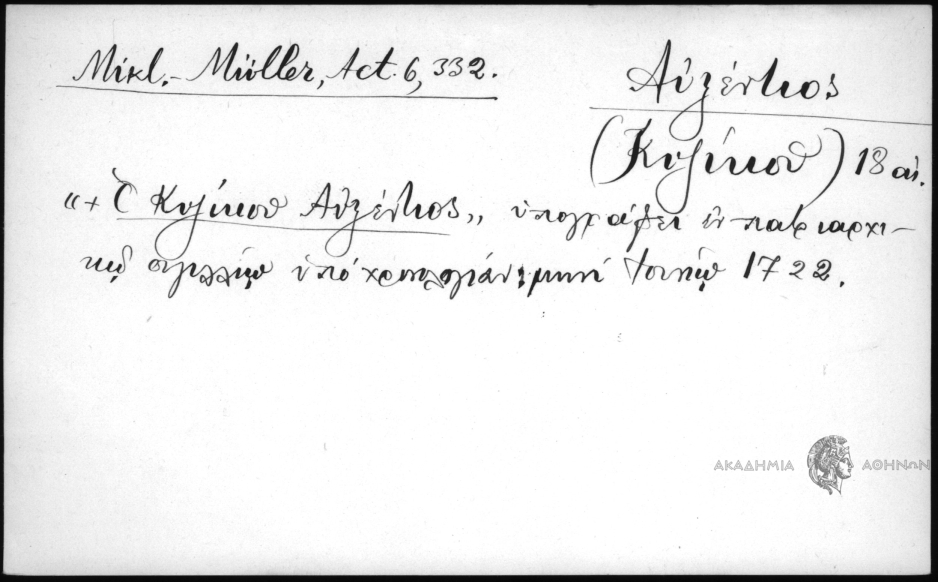 Mikl.-Müller, Act. 6, 332.
Αὐξέντιος
(Κυζίκου) 18 αἰ.
«+ Ὁ Κυζίκου Αὐξέντιος» ὑπογράφει ἐν πατριαρχι-
κῷ σιγιλλίῳ ὑπὸ χρονολογίαν: μηνὶ Ἰουνίῳ 1722.
ΑΚΑΔΗΜΙΑ ΑΘΗΝΩΝ